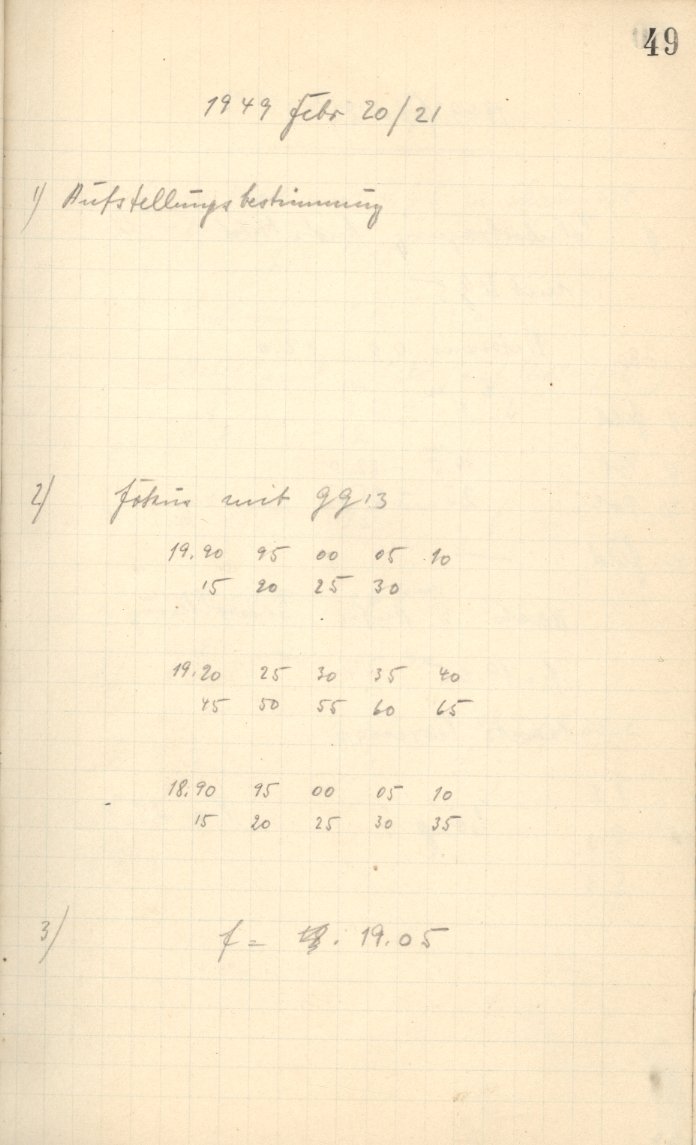 49
1949 Febr 20/21
1) Aufstellungsbestimmung
2) Fokus mit GG13
19.90 95 00 05 10
15 20 25 30
19.20 25 30 35 40
45 50 55 60 65
18.90 95 00 05 10
15 20 25 30 35
3) f = 19.05